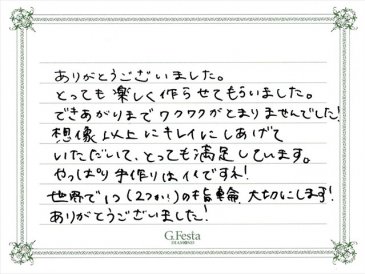 ありがとうございました。
とっても楽しく作らせてもらいました。
できあがりまでワクワクがとまりませんでした!
想像以上にキレイにしあげて
いただいて、とっても満足しています。
やっぱり手作りはイイですネ!
世界で1つ(2つかい)の指輪、大切にします!
ありがとうございました!
G.Festa
DIAMOND